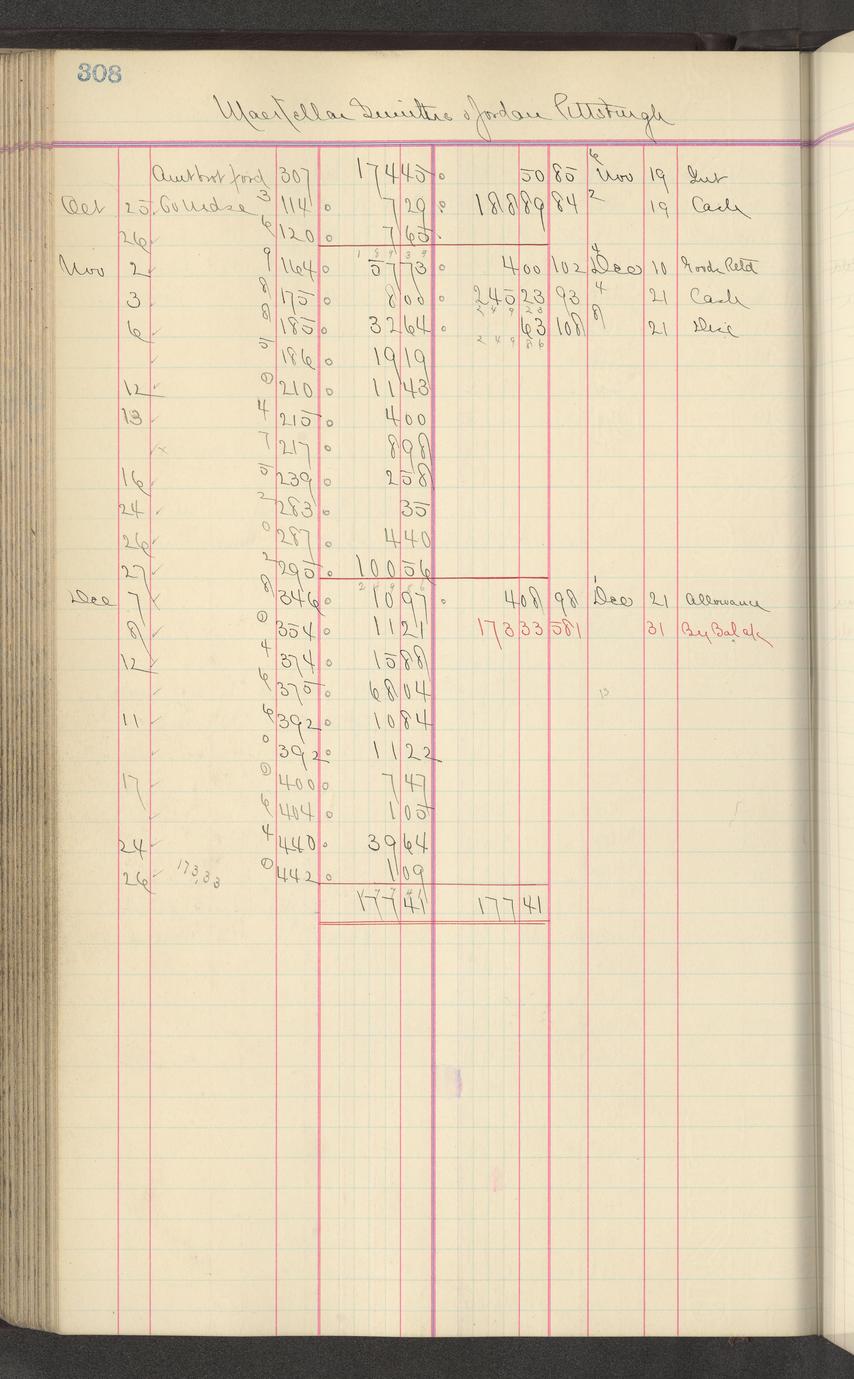 308
MacKellar Smiths & Jordan Pittsburgh
Amt brot ford 307 174 45 50 85 6 Nov 19 Int
Oct 25 To Mdse 3 114 7 29 188 89 84 2 19 Cash
26 6 120 7 65
1 8 9 3 9
Nov 2 9 164 57 73 4 00 102 4 Dec 10 Goods Retd
3 8 175 8 00 245 23 93 4 21 Cash
2 4 9 2 3
6 8 185 32 64 63 108 8 21 Disc
2 4 9 8 6
5 186 19 19
12 0 210 11 43
13 4 215 4 00
7 217 8 98
16 5 239 2 58
24 2 283 35
26 0 287 4 40
27 2 295 100 56
2 4 9 8 6
Dec 7 8 346 10 97 4 08 98 1 Dec 21 Allowance
8 0 354 11 21 173 33 581 31 By Bal c/c
12 4 374 15 88
6 375 68 04 13
11 6 392 10 84
0 392 11 22
17 0 400 7 47
6 404 1 05
24 4 440 39 64
26 173,33 0 442 1 09
177 41 177 41